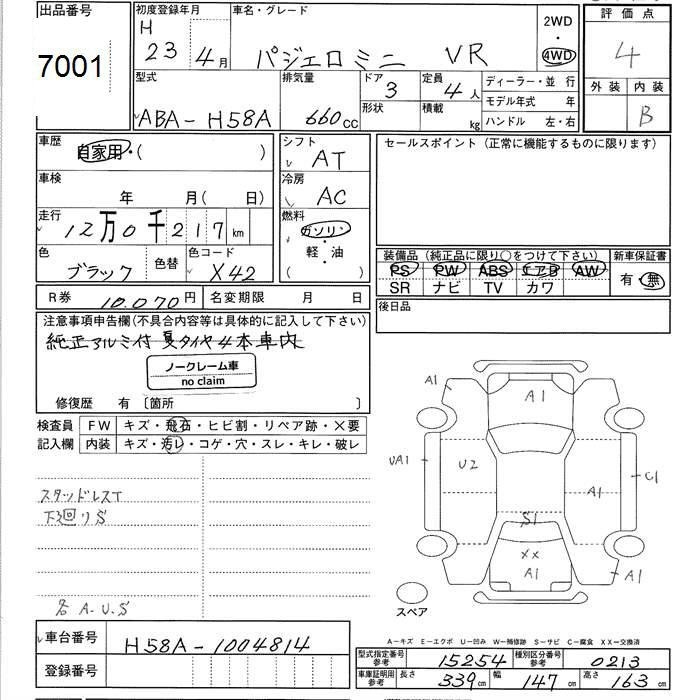 出品番号
7001
初度登録年月
H
23 4月
車名・グレード
パジェロミニ VR
2WD
・
4WD
評価点
4
外装 内装
B
型式
ABA-H58A
排気量
660cc
ドア
3
形状
定員
4人
積載
kg
ディーラー・並 行
モデル年式 年
ハンドル 左・右
車歴
自家用・( )
車検
年 月( 日)
走行
12万0千217km
色
ブラック
色替
色コード
X42
シフト
AT
冷房
AC
燃料
ガソリン・
軽・油
( )
セールスポイント (正常に機能するものに限ります)
装備品 (純正品に限り○をつけて下さい)
PS PW ABS エアB AW
SR ナビ TV カワ
新車保証書
有・無
後日品
R券 10,070円
名変期限 月 日
注意事項申告欄(不具合内容等は具体的に記入して下さい)
純正アルミ付 夏タイヤ4本車内
ノークレーム車
no claim
修復歴 有 〔箇所 〕
検査員
記入欄
FW キズ・飛石・ヒビ割・リペア跡・×要
内装 キズ・汚レ・コゲ・穴・スレ・キレ・破レ
スタッドレスT
下廻りS
各A.U.S
A1
A1
UA1
U2
A1
C1
S1
XX
A1
A1
スペア
A-キズ E-エクボ U-凹み W-補修跡 S-サビ C-腐食 XX-交換済
車台番号 H58A-1004814
登録番号
型式指定番号
参考
15254
種別区分番号
参考
0213
車庫証明用
参考
長さ 339cm 幅 147cm 高さ 163cm